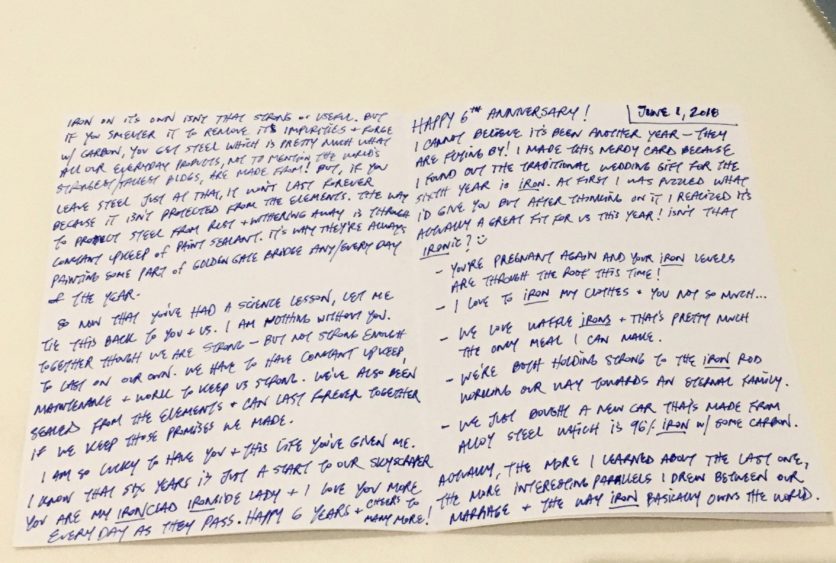 HAPPY 6TH ANNIVERSARY!
JUNE 1, 2018
I CANNOT BELIEVE IT'S BEEN ANOTHER YEAR - THEY
ARE FLYING BY! I MADE THIS NERDY CARD BECAUSE
I FOUND OUT THE TRADITIONAL WEDDING GIFT FOR THE
SIXTH YEAR IS IRON. AT FIRST I WAS PUZZLED WHAT
I'D GIVE YOU BUT AFTER THINKING ON IT I REALIZED IT'S
ACTUALLY A GREAT FIT FOR US THIS YEAR! ISN'T THAT
IRONIC? :)
- YOU'RE PREGNANT AGAIN AND YOUR IRON LEVELS
ARE THROUGH THE ROOF THIS TIME!
- I LOVE TO IRON MY CLOTHES + YOU NOT SO MUCH...
- WE LOVE WAFFLE IRONS + THAT'S PRETTY MUCH
THE ONLY MEAL I CAN MAKE.
- WE'RE BOTH HOLDING STRONG TO THE IRON ROD
WORKING OUR WAY TOWARDS AN ETERNAL FAMILY.
- WE JUST BOUGHT A NEW CAR THAT'S MADE FROM
ALLOY STEEL WHICH IS 96% IRON W/ SOME CARBON.
ACTUALLY, THE MORE I LEARNED ABOUT THE LAST ONE,
THE MORE INTERESTING PARALLELS I DREW BETWEEN OUR
MARRIAGE + THE WAY IRON BASICALLY OWNS THE WORLD.
IRON ON IT'S OWN ISN'T THAT STRONG or USEFUL. BUT
IF YOU SMELTER IT TO REMOVE ITS IMPURITIES + FORGE
W/ CARBON, YOU GET STEEL WHICH IS PRETTY MUCH WHAT
ALL OUR EVERYDAY PRODUCTS, NOT TO MENTION THE WORLD'S
STRONGEST/TALLEST BLDGS, ARE MADE FROM! BUT, IF YOU
LEAVE STEEL JUST AT THAT, IT WON'T LAST FOREVER
BECAUSE IT ISN'T PROTECTED FROM THE ELEMENTS. THE WAY
TO PROTECT STEEL FROM RUST + WITHERING AWAY IS THROUGH
CONSTANT UPKEEP OF PAINT SEALANT. IT'S WHY THEY'RE ALWAYS
PAINTING SOME PART of GOLDEN GATE BRIDGE ANY/EVERY DAY
of THE YEAR.
SO NOW THAT YOU'VE HAD A SCIENCE LESSON, LET ME
TIE THIS BACK TO YOU + US. I AM NOTHING WITHOUT YOU.
TOGETHER THOUGH WE ARE STRONG - BUT NOT STRONG ENOUGH
TO LAST ON OUR OWN. WE HAVE TO HAVE CONSTANT UPKEEP,
MAINTENANCE + WORK TO KEEP US STRONG. WE'VE ALSO BEEN
SEALED FROM THE ELEMENTS + CAN LAST FOREVER TOGETHER
IF WE KEEP THOSE PROMISES WE MADE.
I AM SO LUCKY TO HAVE YOU + THIS LIFE YOU'VE GIVEN ME.
I KNOW THAT SIX YEARS IS JUST A START TO OUR SKYSCRAPER
YOU ARE MY IRONCLAD IRONSIDE LADY + I LOVE YOU MORE
EVERY DAY AS THEY PASS. HAPPY 6 YEARS + CHEERS TO
MANY MORE!